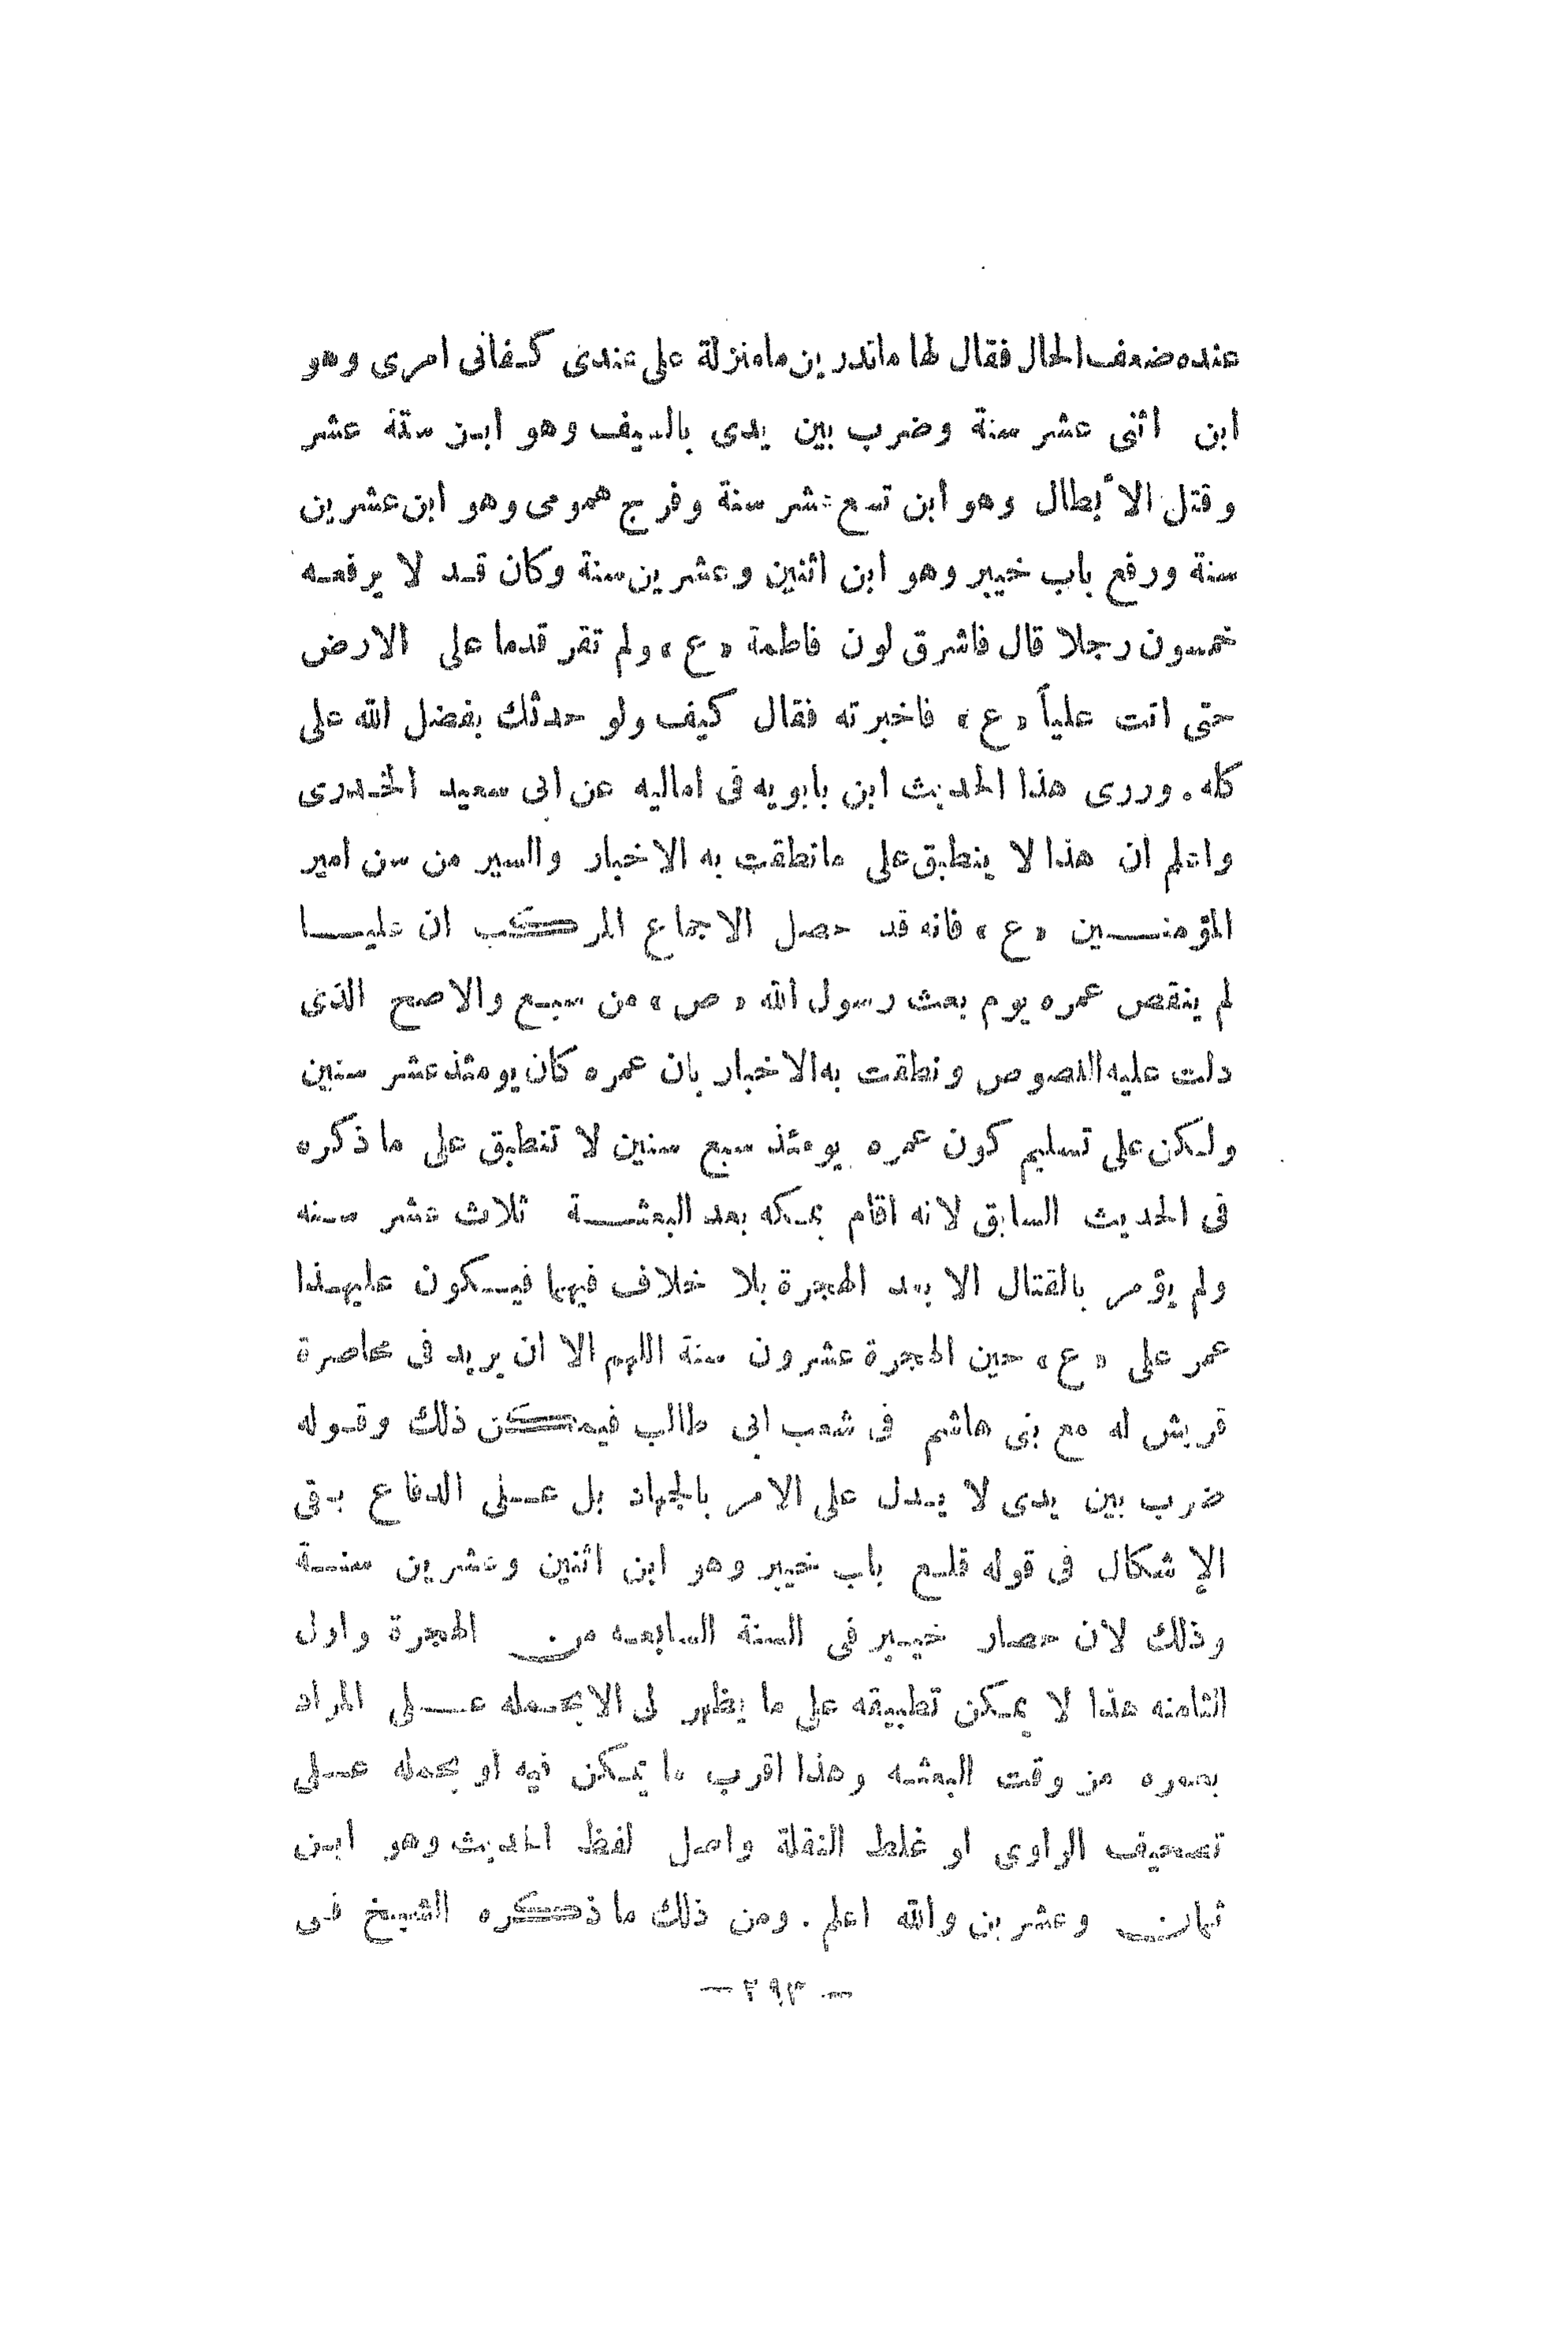 عنده ضعف الحال فقال لها ماتدرين مامنزلة على عندى كفانى امرى وهو
ابن اثنى عشر سنة وضرب بين يدى بالسيف وهو ابن ستة عشر
وقتل الأبطال وهو ابن تسع عشر سنة وفرج همومى وهو ابن عشرين
سنة ورفع باب خيبر وهو ابن اثنين وعشرين سنة وكان قد لا يرفعه
خمسون رجلا قال فاشرق لون فاطمة «ع» ولم تقر قدما على الارض
حتى اتت علياً «ع» فاخبرته فقال كيف ولو حدثك بفضل الله على
كله. وروى هذا الحديث ابن بابويه فى اماليه عن ابى سعيد الخدرى
واعلم ان هذا لا ينطبق على مانطقت به الاخبار والسير من سن امير
المؤمنين «ع» فانه قد حصل الاجماع المركب ان عليا
لم ينقص عمره يوم بعث رسول الله «ص» من سبع والاصح الذى
دلت عليه النصوص ونطقت به الاخبار بان عمره كان يومئذ عشر سنين
ولكن على تسليم كون عمره يومئذ سبع سنين لا تنطبق على ما ذكره
فى الحديث السابق لانه اقام بمكه بعد البعثة ثلاث عشر سنه
ولم يؤمر بالقتال الا بعد الهجرة بلا خلاف فيهما فيكون عليهذا
عمر على «ع» حين الهجرة عشرون سنة اللهم الا ان يريد فى محاصرة
قريش له مع بنى هاشم فى شعب ابى طالب فيمكن ذلك وقوله
ضرب بين يدى لا يدل على الامر بالجهاد بل على الدفاع بقى
الإشكال فى قوله قلع باب خيبر وهو ابن اثنين وعشرين سنة
وذلك لان حصار خيبر فى السنة السابعه من الهجرة واول
الثامنه هذا لا يمكن تطبيقه على ما يظهر لى الا بحمله على المراد
بعمره من وقت البعثه وهذا اقرب ما يمكن فيه او بحمله على
تصحيف الراوى او غلط النقلة واصل لفظ الحديث وهو ابن
ثمان وعشرين والله اعلم. ومن ذلك ما ذكره الشيخ فى
— ٢٩٣ —